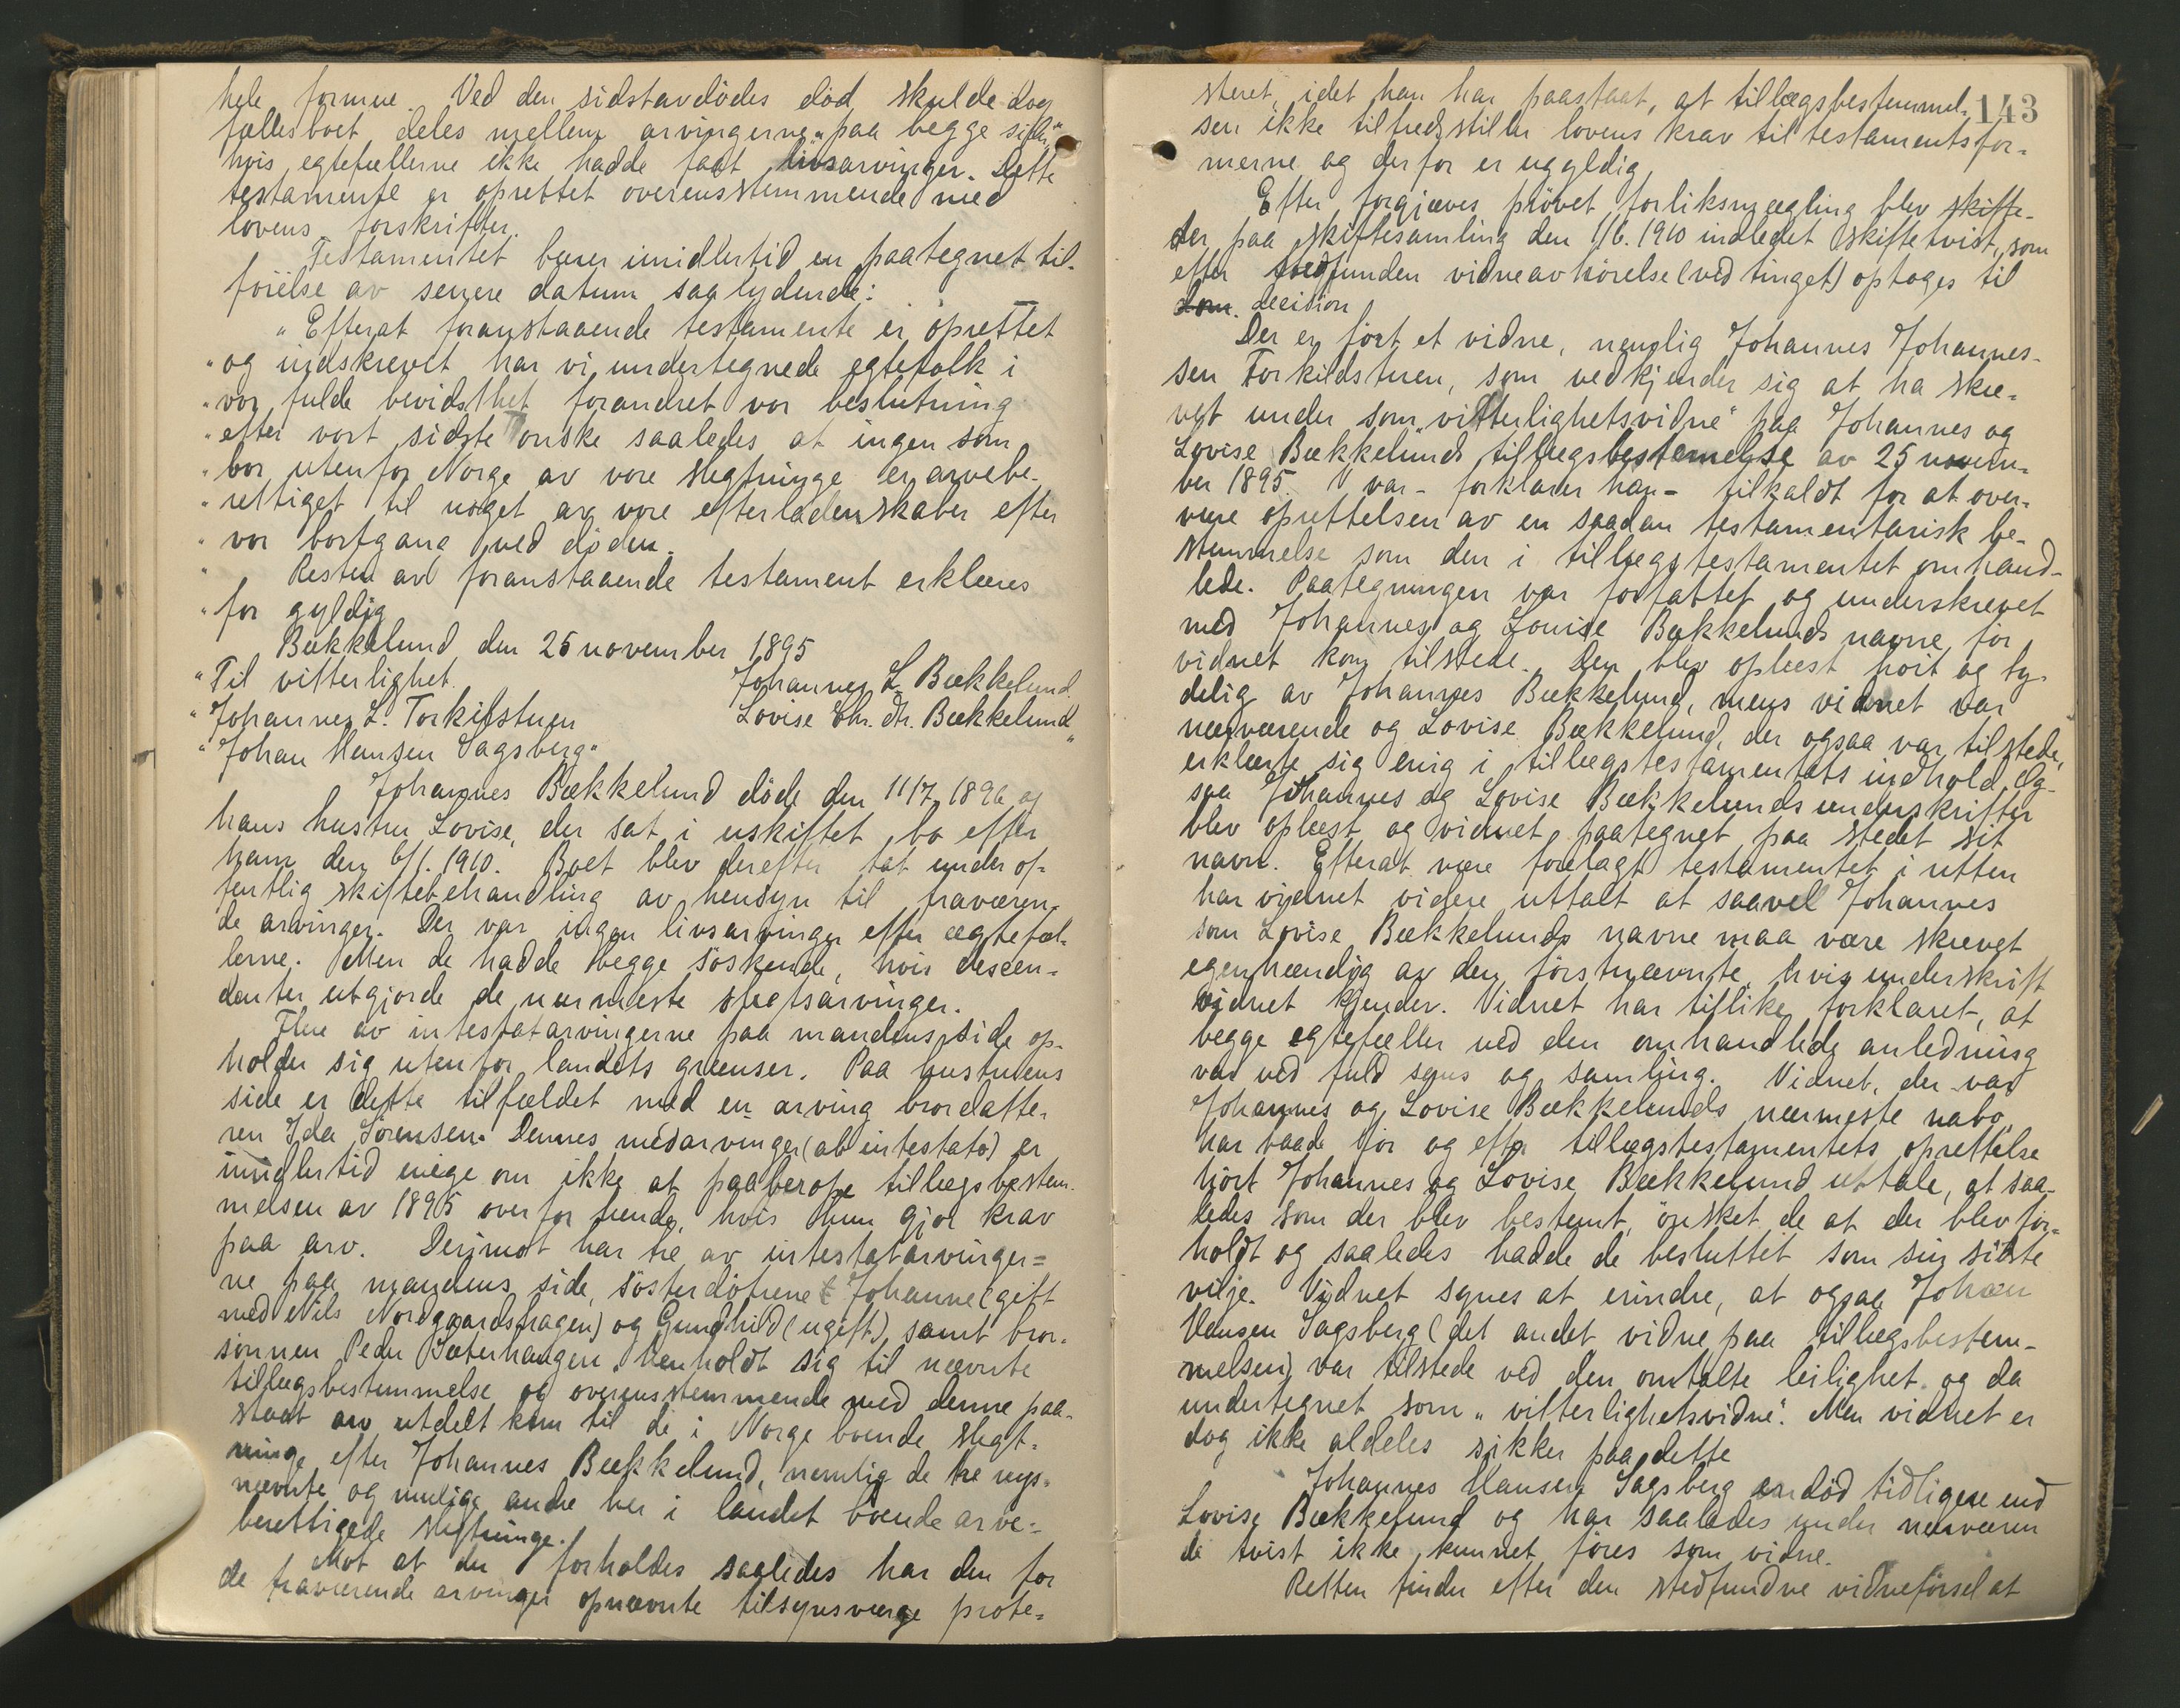 hele formue. Ved den sidstavdödes död skulde dog
fællesboet deles mellem arvingerne "paa begge sider",
hvis egtefællerne ikke hadde faat livsarvinger. Dette
testamente er oprettet overensstemmende med
lovens forskrifter.
Testamentet bærer imidlertid en paategnet til-
föielse av senere datum saalydende:
"Efterat foranstaaende testamente er oprettet
"og indskrevet har vi undertegnede egtefolk i
"vor fulde bevidsthet forandret vor beslutning
"efter vort sidste önske saaledes at ingen som
"bor utenfor Norge av vore slegtninge er arvebe-
"rettiget til noget av vore efterladenskaber efter
"vor bortgang ved döden.
" Resten av foranstaaende testament erklæres
"for gyldig
Bækkelund den 25 november 1895
"Til vitterlighet. Johannes L. Bækkelund
"Johannes L. Torkilstuen Lovise Chr. dtr. Bækkelund"
"Johan Hansen Sagsberg"
Johannes Bækkelund döde den 11/7 1896 og
hans hustru Lovise, der sat i uskiftet bo efter
ham den 6/1. 1910. Boet blev derefter tat under of-
fentlig skiftebehandling av hensyn til fraværen-
de arvinger. Der var ingen livsarvinger efter ægtefæl-
lerne. Men de hadde begge söskende, hvis descen-
denter utgjorde de nærmeste slegtsarvinger.
Flere av intestatarvingerne paa mandens side op-
holder sig utenfor landets grænser. Paa hustruens
side er dette tilfældet med en arving brordatte-
ren Ida Sörensen. Dennes medarvinger (ab intestato) er
imidlertid enige om ikke at paaberope tillægsbestem-
melsen av 1895 overfor hende, hvis hun gjör krav
paa arv. Derimot har tre av intestatarvinger=
ne paa mandens side, sösterdötrene Johanne (gift
med Nils Nordgaardshagen) og Gundhild (ugift), samt bror-
sönnen Peder Sæterhaugen henholdt sig til nævnte
tillægsbestemmelse og overensstemmende med denne paa-
staat arv utdelt kun til de i Norge boende slegt-
ninge efter Johannes Bækkelund, nemlig de tre nys-
nævnte og mulige andre her i landet boende arve-
berettigede slegtninge.
Mot at der forholdes saaledes har den for
de fraværende arvinger opnævnte tilsynsværge prote=
143
steret, idet han har paastaat, at tillægsbestemmel-
sen ikke tilfredsstiller lovens krav til testamentsfor-
merne og derfor er ugyldig.
Efter forgjæves prövet forliksmægling blev skifte-
der paa skiftesamling den 1/6. 1910 indledet skiftetvist, som
efter stedfunden vidneavhörelse (ved tinget) optoges til
dom. decision
Der er fört et vidne, nemlig Johannes Johannes-
sen Torkildstuen, som vedkjender sig at ha skre-
vet under som "vitterlighetsvidne" paa Johannes og
Lovise Bækkelunds tillægsbestemelse av 25 novem-
ber 1895. V var - forklarer han - tilkaldt for at over-
være oprettelsen av en saadan testamentarisk be-
stemmelse som den i tillægstestamentet omhand-
lede. Paategningen var forfattet og underskrevet
med Johannes og Lovise Bækkelunds navne för
vidnet kom tilstede. Den blev oplæst höit og ty-
delig av Johannes Bækkelund, mens vidnet var
nærværende og Lovise Bækkelund, der ogsaa var tilstede,
erklærte sig enig i tillægstestamentets indhold. Og-
saa Johannes og Lovise Bækkelunds underskrifter
blev oplæst og vidnet paategnet paa stedet sit
navn. Efterat være forelagt testamentet i retten
har vidnet videre uttalt at saavel Johannes
som Lovise Bækkelunds navne maa være skrevet
egenhændig av den förstnævnte hvis underskrift
vidnet kjender. Vidnet har tillike forklaret, at
begge egtefæller ved den omhandlede anledning
var ved fuld sans og samling. Vidnet, der var
Johannes og Lovise Bækkelunds nærmeste nabo,
har baade för og efter tillægstestamentets oprettelse
hört Johannes og Lovise Bækkelund uttale, at saa-
ledes som der blev bestemt, önsket de at der blev for-
holdt og saaledes hadde de besluttet som sin siste
vilje. Vidnet synes at erindre, at ogsaa Johan
Hansen Sagsberg (det andet vidne paa tillægsbestem-
melsen) var tilstede ved den omtalte leilighet og da
undertegnet som "vitterlighetsvidne". Men vidnet er
dog ikke aldeles sikker paa dette
Johannes Hansen Sagsberg er död tidligere end
Lovise Bækkelund og har saaledes under nærværen
de tvist ikke kunnet föres som vidne.
Retten finder efter den stedfundne vidneförsel at